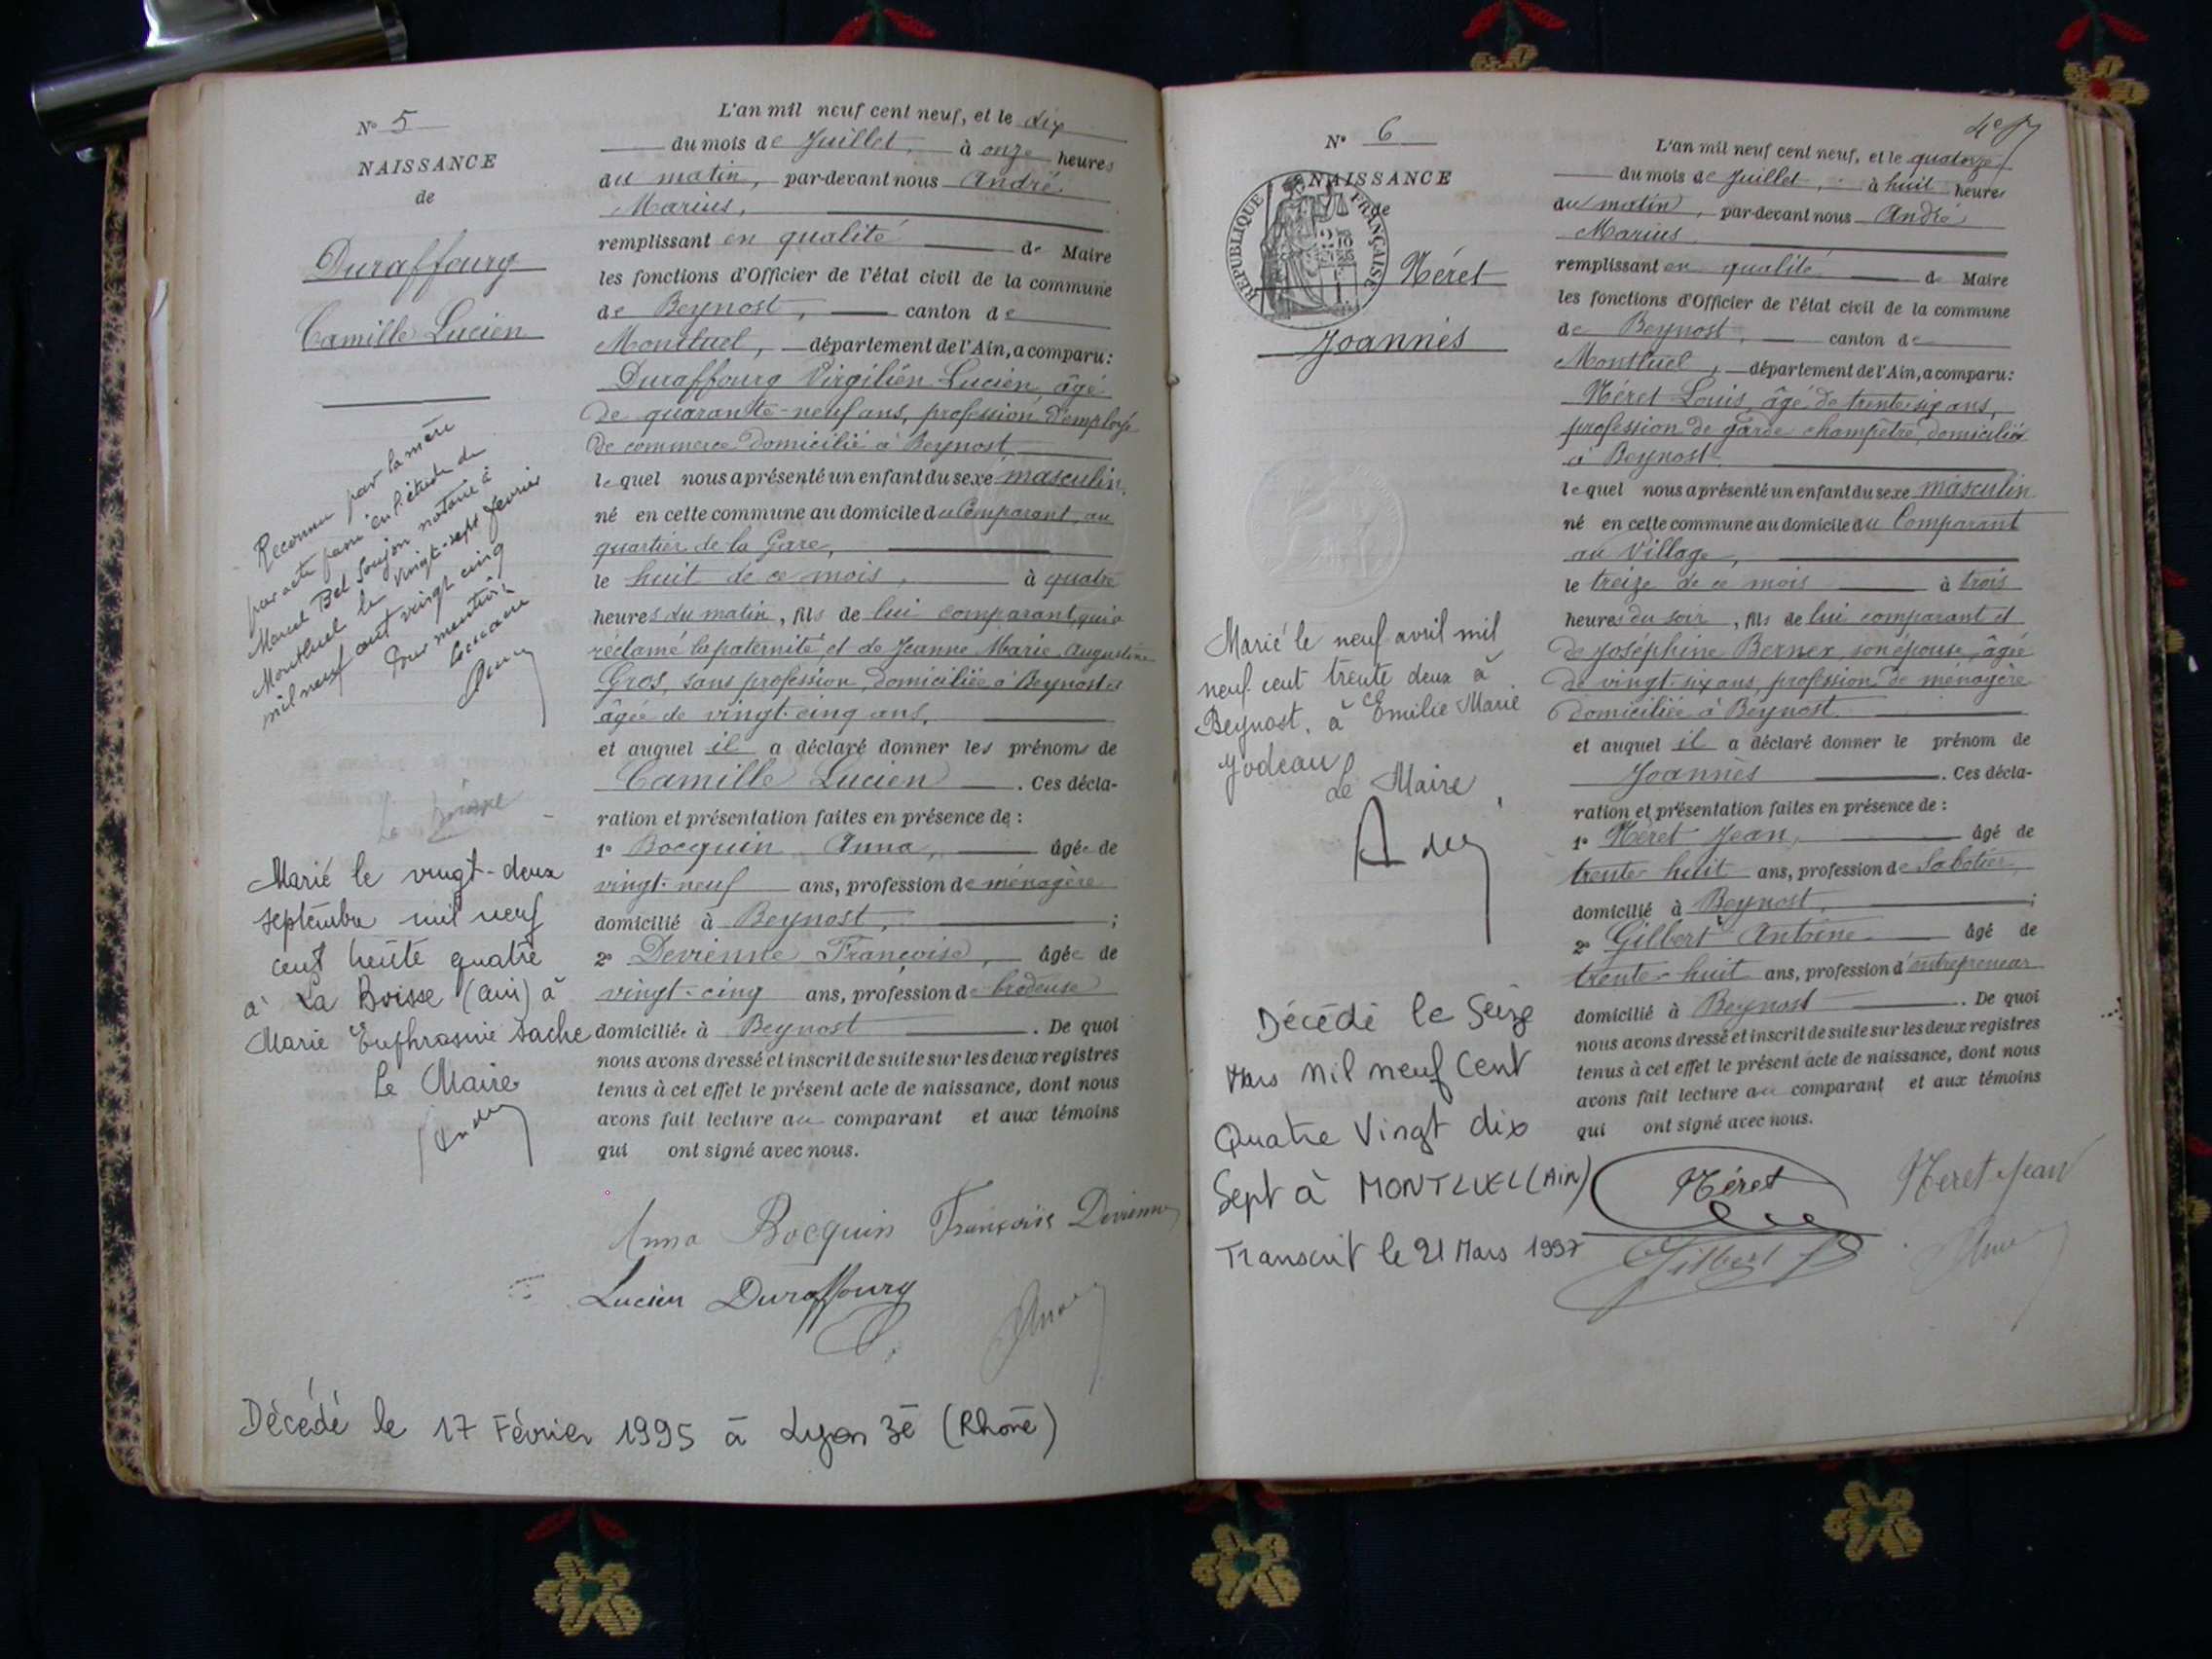 N° 5
NAISSANCE
de
Duraffourg
Camille Lucien
Reconnu par la mère
par acte passé en l'étude de
Marcel Bel Soujon notaire à
Montluel le vingt-sept février
mil neuf cent vingt cinq
Pour mention
Le Boisse
Marié le vingt-deux
septembre mil neuf
cent trente quatre
à La Boisse (Ain) à
Marie Euphrasie Sache
Le Maire
L'an mil neuf cent neuf, et le dix
du mois de Juillet, à onze heures
du matin, par-devant nous André
Marius,
remplissant en qualité de Maire
les fonctions d'Officier de l'état civil de la commune
de Beynost, canton de
Montluel, département de l'Ain, a comparu :
Duraffourg Virgilien Lucien, âgé
de quarante-neuf ans, profession d'employé
de commerce domicilié à Beynost
lequel nous a présenté un enfant du sexe masculin,
né en cette commune au domicile du Comparant, au
quartier de la Gare,
le huit de ce mois, à quatre
heures du matin, fils de lui comparant qui a
réclamé la paternité et de Jeanne Marie Augustine
Gros, sans profession, domiciliée à Beynost et
âgée de vingt-cinq ans,
et auquel il a déclaré donner les prénoms de
Camille Lucien. Ces décla-
ration et présentation faites en présence de :
1° Bocquin Anna, âgée de
vingt-neuf ans, profession de ménagère
domicilié à Beynost, ;
2° Devienne Françoise, âgée de
vingt-cinq ans, profession de brodeuse
domiciliée à Beynost. De quoi
nous avons dressé et inscrit de suite sur les deux registres
tenus à cet effet le présent acte de naissance, dont nous
avons fait lecture au comparant et aux témoins
qui ont signé avec nous.
Anna Bocquin Françoise Devienne
Lucien Duraffourg
Décédé le 17 Février 1995 à Lyon 3è (Rhône)
N° 6
NAISSANCE
de
REPUBLIQUE FRANÇAISE
Néret
Joannès
Marié le neuf avril mil
neuf cent trente deux à
Beynost, à Emilie Marie
Jodeau
Le Maire
Décédé le Seize
Mars Mil neuf Cent
Quatre Vingt dix
Sept à MONTLUEL (AIN)
Transcrit le 21 Mars 1997
L'an mil neuf cent neuf, et le quatorze
du mois de Juillet, à huit heures
du matin, par-devant nous André
Marius
remplissant en qualité de Maire
les fonctions d'Officier de l'état civil de la commune
de Beynost, canton de
Montluel, département de l'Ain, a comparu :
Néret Louis, âgé de trente-six ans,
profession de garde champêtre, domicilié
à Beynost
lequel nous a présenté un enfant du sexe masculin
né en cette commune au domicile du Comparant
au Village,
le treize de ce mois à trois
heures du soir, fils de lui comparant et
de Joséphine Bernex, son épouse, âgée
de vingt-six ans, profession de ménagère
domiciliée à Beynost
et auquel il a déclaré donner le prénom de
Joannès. Ces décla-
ration et présentation faites en présence de :
1° Néret Jean, âgé de
trente-huit ans, profession de Sabotier,
domicilié à Beynost, ;
2° Gilbert Antoine âgé de
trente-huit ans, profession d'entrepreneur
domicilié à Beynost. De quoi
nous avons dressé et inscrit de suite sur les deux registres
tenus à cet effet le présent acte de naissance, dont nous
avons fait lecture au comparant et aux témoins
qui ont signé avec nous.
Néret Néret Jean
Gilbert